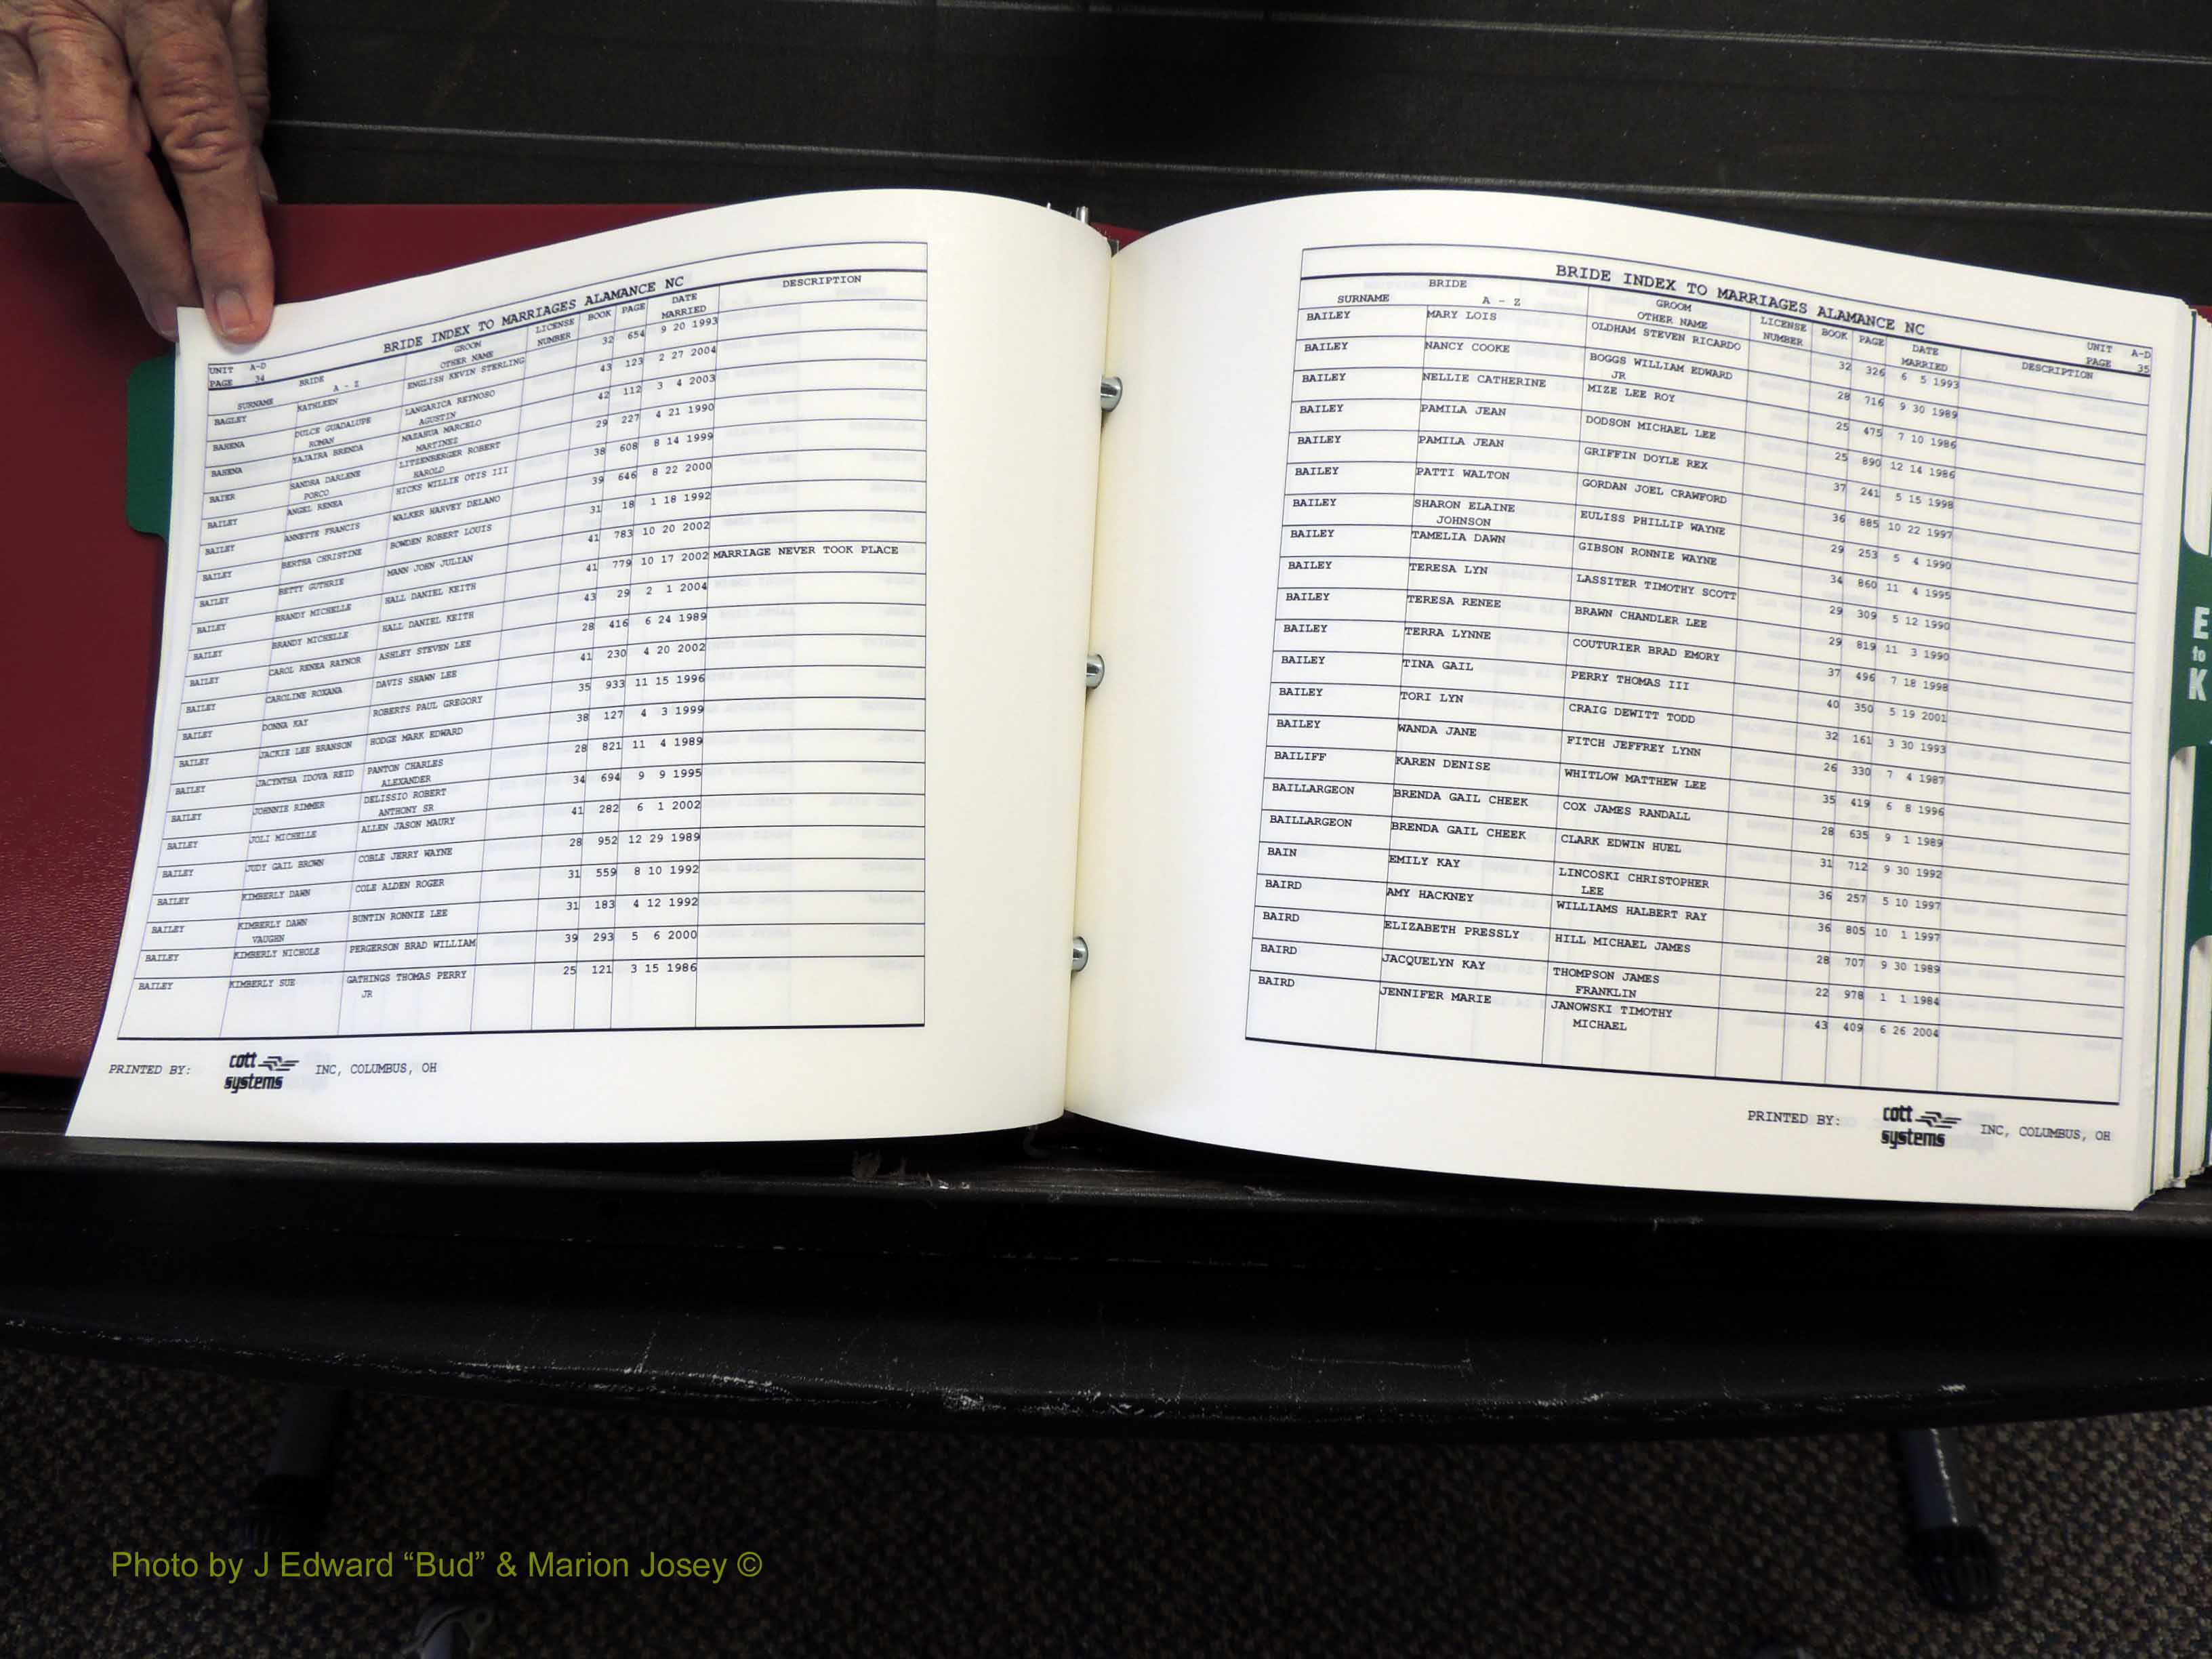 BRIDE INDEX TO MARRIAGES ALAMANCE NC
UNIT A-D
PAGE 34
BRIDE GROOM LICENSE BOOK PAGE DATE DESCRIPTION
SURNAME A - Z OTHER NAME NUMBER MARRIED
BAGLEY KATHLEEN ENGLISH KEVIN STERLING 32 654 9 20 1993
BAHENA DULCE GUADALUPE LANGARICA REYNOSO 43 123 2 27 2004
ROMAN AGUSTIN
BAHENA YAJAIRA BRENDA MAZAHUA MARCELO 42 112 3 4 2003
MARTINEZ
BAIER SANDRA DARLENE LITZENBERGER ROBERT 29 227 4 21 1990
PORCO HAROLD
BAILEY ANGEL RENEA HICKS WILLIE OTIS III 38 608 8 14 1999
BAILEY ANNETTE FRANCIS WALKER HARVEY DELANO 39 646 8 22 2000
BAILEY BERTHA CHRISTINE BOWDEN ROBERT LOUIS 31 18 1 18 1992
BAILEY BETTY GUTHRIE MANN JOHN JULIAN 41 783 10 20 2002
BAILEY BRANDY MICHELLE HALL DANIEL KEITH 41 779 10 17 2002 MARRIAGE NEVER TOOK PLACE
BAILEY BRANDY MICHELLE HALL DANIEL KEITH 43 29 2 1 2004
BAILEY CAROL RENEA RAYNOR ASHLEY STEVEN LEE 28 416 6 24 1989
BAILEY CAROLINE ROXANA DAVIS SHAWN LEE 41 230 4 20 2002
BAILEY DONNA KAY ROBERTS PAUL GREGORY 35 933 11 15 1996
BAILEY JACKIE LEE BRANSON HODGE MARK EDWARD 38 127 4 3 1999
BAILEY JACYNTHA IDOVA REID PANTON CHARLES 28 821 11 4 1989
ALEXANDER
BAILEY JOHNNIE RIMMER DELISSIO ROBERT 34 694 9 9 1995
ANTHONY SR
BAILEY JOLI MICHELLE ALLEN JASON MAURY 41 282 6 1 2002
BAILEY JUDY GAIL BROWN COBLE JERRY WAYNE 28 952 12 29 1989
BAILEY KIMBERLY DAWN COLE ALDEN ROGER 31 559 8 10 1992
BAILEY KIMBERLY DAWN BUNTIN RONNIE LEE 31 183 4 12 1992
VAUGHN
BAILEY KIMBERLY NICHOLE PERGERSON BRAD WILLIAM 39 293 5 6 2000
BAILEY KIMBERLY SUE GATHINGS THOMAS PERRY 25 121 3 15 1986
JR
PRINTED BY: cott systems INC, COLUMBUS, OH
BRIDE INDEX TO MARRIAGES ALAMANCE NC
UNIT A-D
PAGE 35
BRIDE GROOM LICENSE BOOK PAGE DATE DESCRIPTION
SURNAME A - Z OTHER NAME NUMBER MARRIED
BAILEY MARY LOIS OLDHAM STEVEN RICARDO 32 326 6 5 1993
BAILEY NANCY COOKE BOGGS WILLIAM EDWARD 28 716 9 30 1989
JR
BAILEY NELLIE CATHERINE MIZE LEE ROY 25 475 7 10 1986
BAILEY PAMILA JEAN DODSON MICHAEL LEE 25 890 12 14 1986
BAILEY PAMILA JEAN GRIFFIN DOYLE REX 37 241 5 15 1998
BAILEY PATTI WALTON GORDAN JOEL CRAWFORD 36 885 10 22 1997
BAILEY SHARON ELAINE EULISS PHILLIP WAYNE 29 253 5 4 1990
JOHNSON
BAILEY TAMELIA DAWN GIBSON RONNIE WAYNE 34 860 11 4 1995
BAILEY TERESA LYN LASSITER TIMOTHY SCOTT 29 309 5 12 1990
BAILEY TERESA RENEE BRAWN CHANDLER LEE 29 819 11 3 1990
BAILEY TERRA LYNNE COUTURIER BRAD EMORY 37 496 7 18 1998
BAILEY TINA GAIL PERRY THOMAS III 40 350 5 19 2001
BAILEY TORI LYN CRAIG DEWITT TODD 32 161 3 30 1993
BAILEY WANDA JANE FITCH JEFFREY LYNN 26 330 7 4 1987
BAILIFF KAREN DENISE WHITLOW MATTHEW LEE 35 419 6 8 1996
BAILLARGEON BRENDA GAIL CHEEK COX JAMES RANDALL 28 635 9 1 1989
BAILLARGEON BRENDA GAIL CHEEK CLARK EDWIN HUEL 31 712 9 30 1992
BAIN EMILY KAY LINCOSKI CHRISTOPHER 36 257 5 10 1997
LEE
BAIRD AMY HACKNEY WILLIAMS HALBERT RAY 36 805 10 1 1997
BAIRD ELIZABETH PRESSLY HILL MICHAEL JAMES 28 707 9 30 1989
BAIRD JACQUELYN KAY THOMPSON JAMES 22 978 1 1 1984
FRANKLIN
BAIRD JENNIFER MARIE JANOWSKI TIMOTHY 43 409 6 26 2004
MICHAEL
PRINTED BY: cott systems INC, COLUMBUS, OH
E
to
K
Photo by J Edward “Bud” & Marion Josey ©